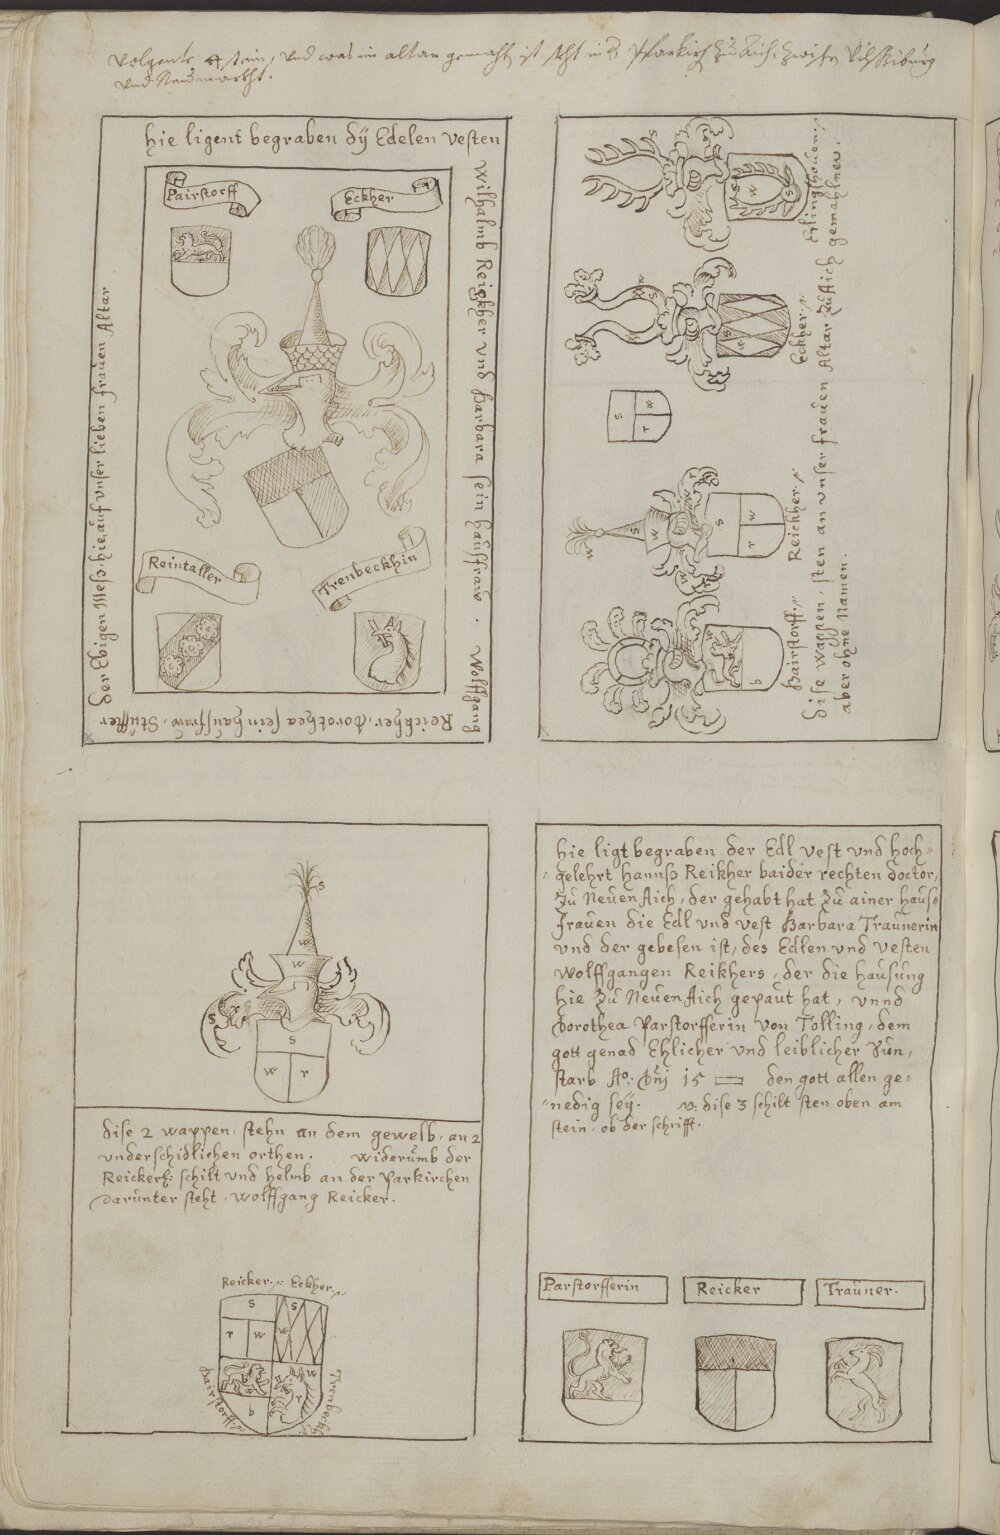 Volgente 4 stein, und was im altar gemacht ist steht in d Pfarkirch zu Aich, zwischen Vilßbiburg
und Neumarckht.
Hie ligent begraben dÿ Edelen Vesten
Wilhalmb Reickher vnd Barbara sein haussfraw. Wolffgang
Reickher, Dorothea sein haussfraw, Stüffter
der Ebigen Mess, hie, auf vnser lieben frauen Altar
Pairstorff
Eckher
Reintaller
Trenbeckhin
Eckher
Reickher
Pairstorff
s
w
r
b
dise wappen, sten an vnser frauen Altar zu Aich gemahlner,
aber ohne Namen.
s
w
w
r
s
s
w
r
dise 2 wappen, stehn an dem gewelb, an 2
vnderschidlichen orthen. Widerumb der
Reickerh: schilt und helmb an der Parkirchen
Darunter steht. Wolffgang Reicker.
Reicker. Eckher.
s
s
r
w
w
w
w
r
b
Pairstorff
Trenbeckh
Hie ligt begraben der Edl vest vnd hoch-
-gelehrt Hannss Reikher baider rechten doctor,
zu Neuen Aich, der gehabt hat zu ainer haus-
frauen die Edl vnd vest Barbara Traunerin
vnd der gebesen ist, des Edlen vnd vesten
Wolffgangen Reikhers, der die hausung
hie zu Neuen Aich gepaut hat, vnnd
Dorothea Parstorfferin von Tolling, dem
gott genad Ehlicher vnd leiblicher Sun,
starb Ao: Dnj 15 den gott allen ge-
-nedig seÿ. N: dise 3 schilt sten oben am
stein, ob der schrifft.
Parstorfferin
Reicker
Trauner.